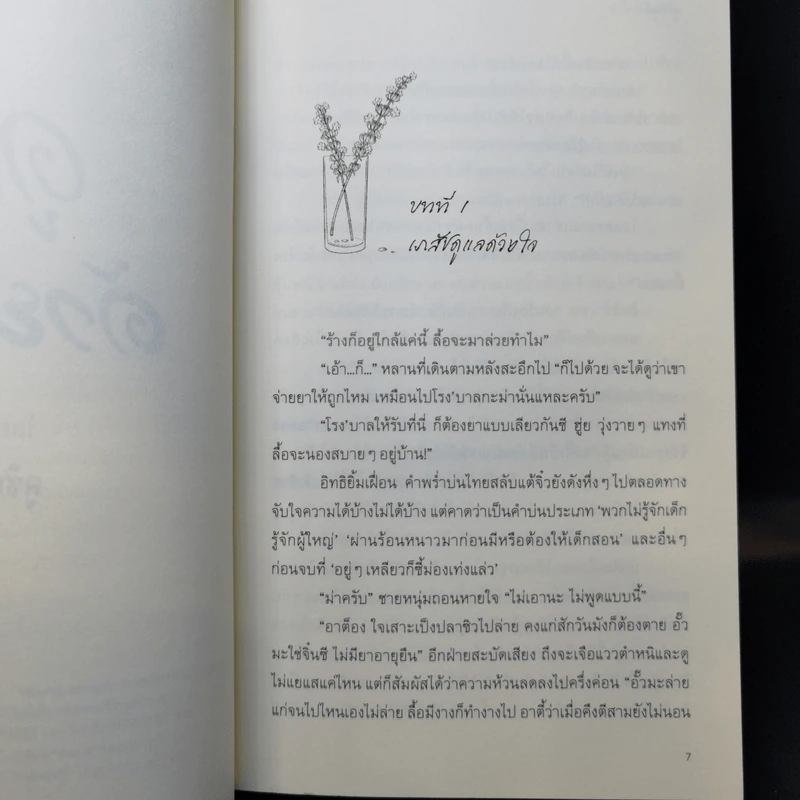 บทที่ 1
เภสัชดูแลด้วยใจ
“ร้างก็อยู่ใกล้แค่นี้ ลื้อจะมาล่วยทำไม”
“เอ้า...ก็...” หลานที่เดินตามหลังสะอึกไป “ก็ไปด้วย จะได้ดูว่าเขา
จ่ายยาให้ถูกไหม เหมือนไปโรง’บาลกะม่านั่นแหละครับ”
“โรง’บาลให้รับที่นี่ ก็ต้องยาแบบเลียวกันซี ฮู่ย วุ่งวายๆ แทงที่
ลื้อจะนองสบายๆ อยู่บ้าน!”
อิทธิยิ้มเฝื่อน คำพร่ำบ่นไทยสลับแต้จิ๋วยังดังหึ่งๆ ไปตลอดทาง
จับใจความได้บ้างไม่ได้บ้าง แต่คาดว่าเป็นคำบ่นประเภท ‘พวกไม่รู้จักเด็ก
รู้จักผู้ใหญ่’ ‘ผ่านร้อนหนาวมาก่อนมีหรือต้องให้เด็กสอน’ และอื่นๆ
ก่อนจบที่ ‘อยู่ๆ เหลียวก็ซี้ม่องเท่งแล่ว’
“ม่าครับ” ชายหนุ่มถอนหายใจ “ไม่เอานะ ไม่พูดแบบนี้”
“อาต็อง ใจเสาะเป็งปลาซิวไปล่าย คงแก่สักวันมังก็ต้องตาย อั๊ว
มะใช่จิ๋นซี ไม่มียาอายุยืน” อีกฝ่ายสะบัดเสียง ถึงจะเจือแววตำหนิและดู
ไม่แยแสแค่ไหน แต่ก็สัมผัสได้ว่าความห้วนลดลงไปครึ่งค่อน “อั๊วมะล่าย
แก่จนไปไหนเองไม่ล่าย ลื้อมีงางก็ทำงางไป อาตี๋ว่าเมื่อคืงตีสามยังไม่นอน
7